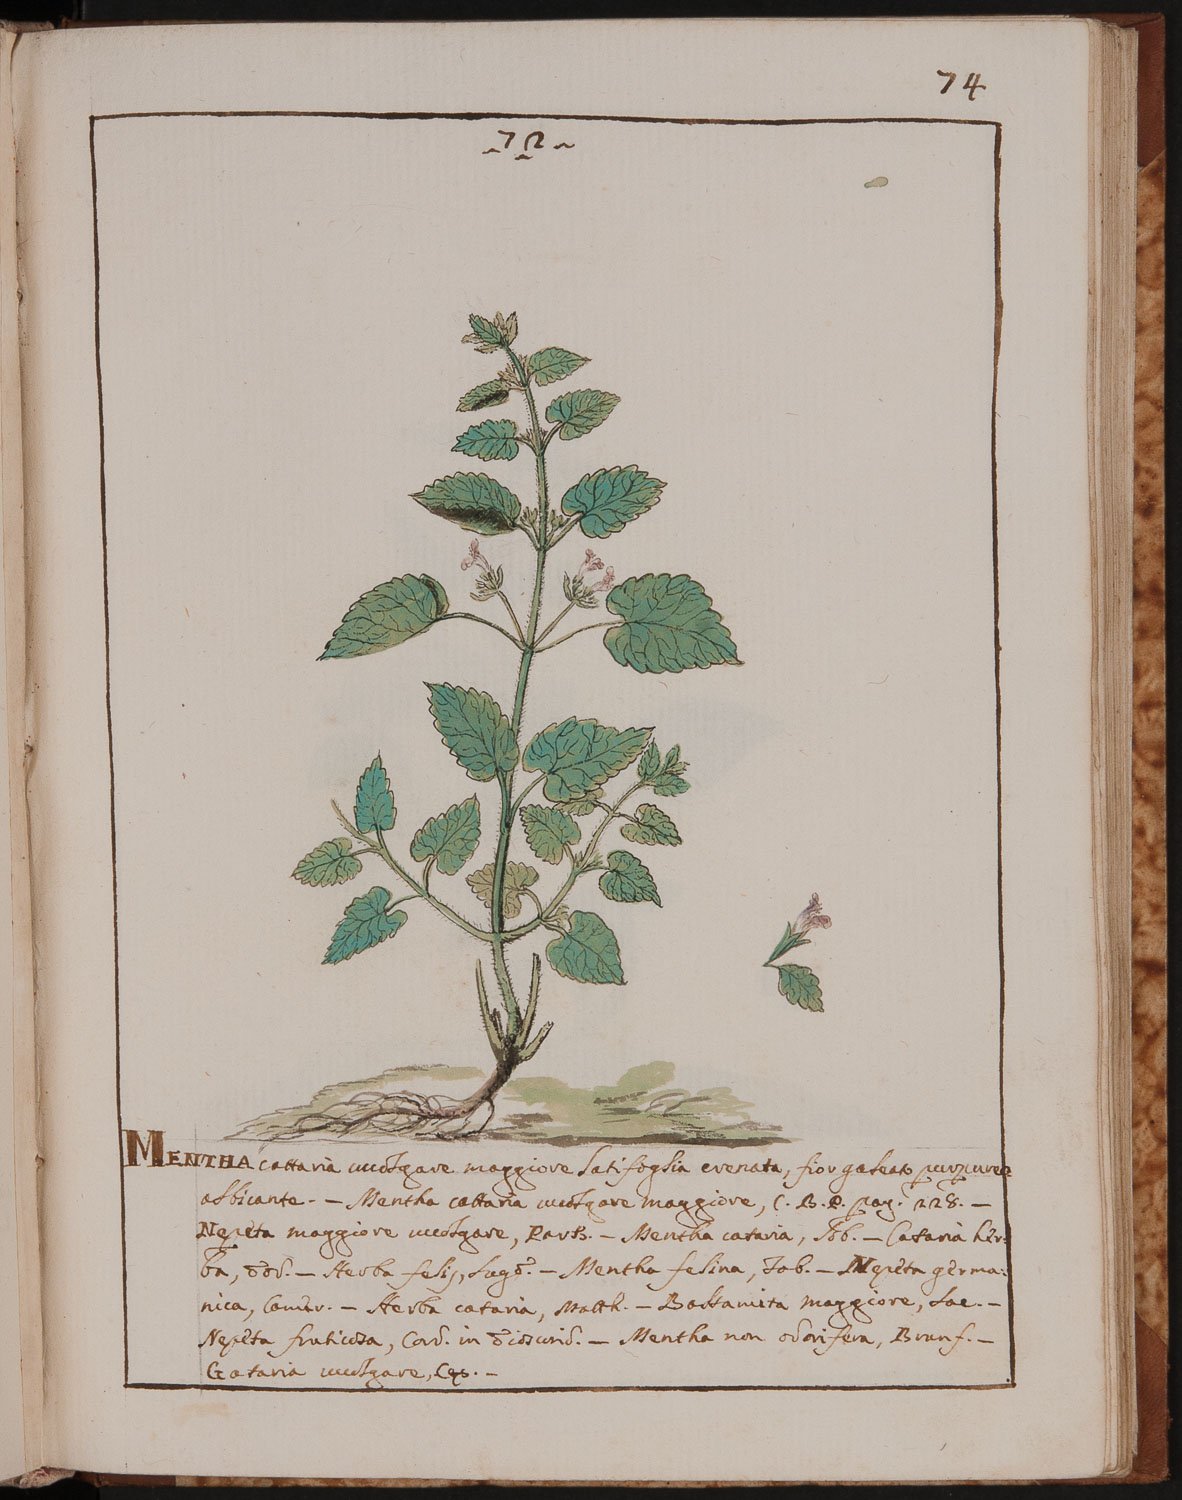 74
72
MENTHA cattaria uuolgare maggiore latifoglia crenata, fior galeato purpureo
albicante. - Mentha cattaria uuolgare maggiore, C. B. P. pag. 228. -
Nepeta maggiore uuolgare, Park. - Mentha cataria, Lob. - Cataria her=
ba, Dod. - Herba felis, Lugd. - Mentha felina, Tab. - Nepeta germa=
nica, Camer. - Herba cataria, Matth. - Balsamita maggiore,
Nepeta fruticosa, Cord. in Dioscurid. - Mentha non odorifera, Brunf. -
Gataria uuolgare, Cęs. -